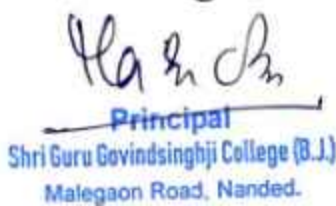 Principal
Shri Guru Govindsinghji College (B.J.)
Malegaon Road, Nanded.